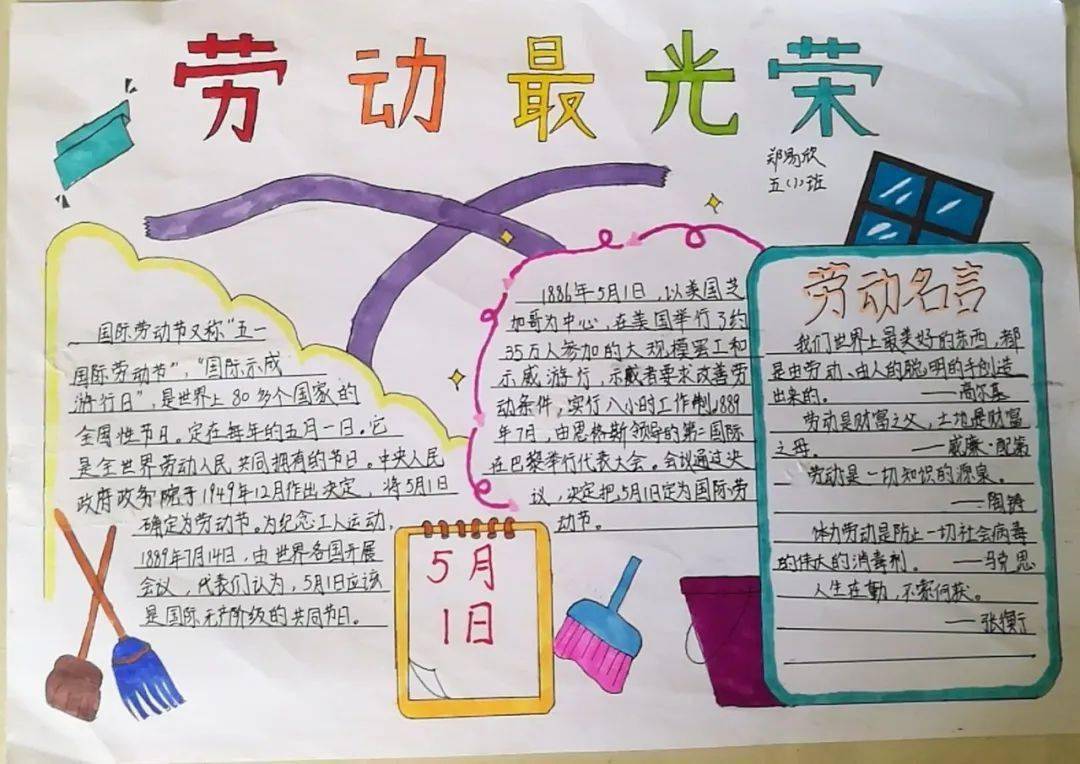 劳动最光荣
郑易欣
五(1)班
国际劳动节又称"五一
国际劳动节","国际示威
游行日",是世界上80多个国家的
全国性节日。定在每年的五月一日。它
是全世界劳动人民共同拥有的节日。中央人民
政府政务院于1949年12月作出决定,将5月1日
确定为劳动节。为纪念工人运动,
1889年7月14日,由世界各国开展
会议,代表们认为,5月1日应该
是国际无产阶级的共同节日。
5月
1日
1886年5月1日,以美国芝
加哥为中心,在美国举行了约
35万人参加的大规模罢工和
示威游行,示威者要求改善劳
动条件,实行八小时工作制。1889
年7月,由恩格斯领导的第二国际
在巴黎举行代表大会。会议通过决
议,决定把5月1日定为国际劳
动节。
劳动名言
我们世界上最美好的东西,都
是由劳动、由人的聪明的手创造
出来的。——高尔基
劳动是财富之父,土地是财富
之母。——威廉·配第
劳动是一切知识的源泉。
——陶铸
体力劳动是防止一切社会病毒
的伟大的消毒剂。——马克思
人生在勤,不索何获。
——张衡